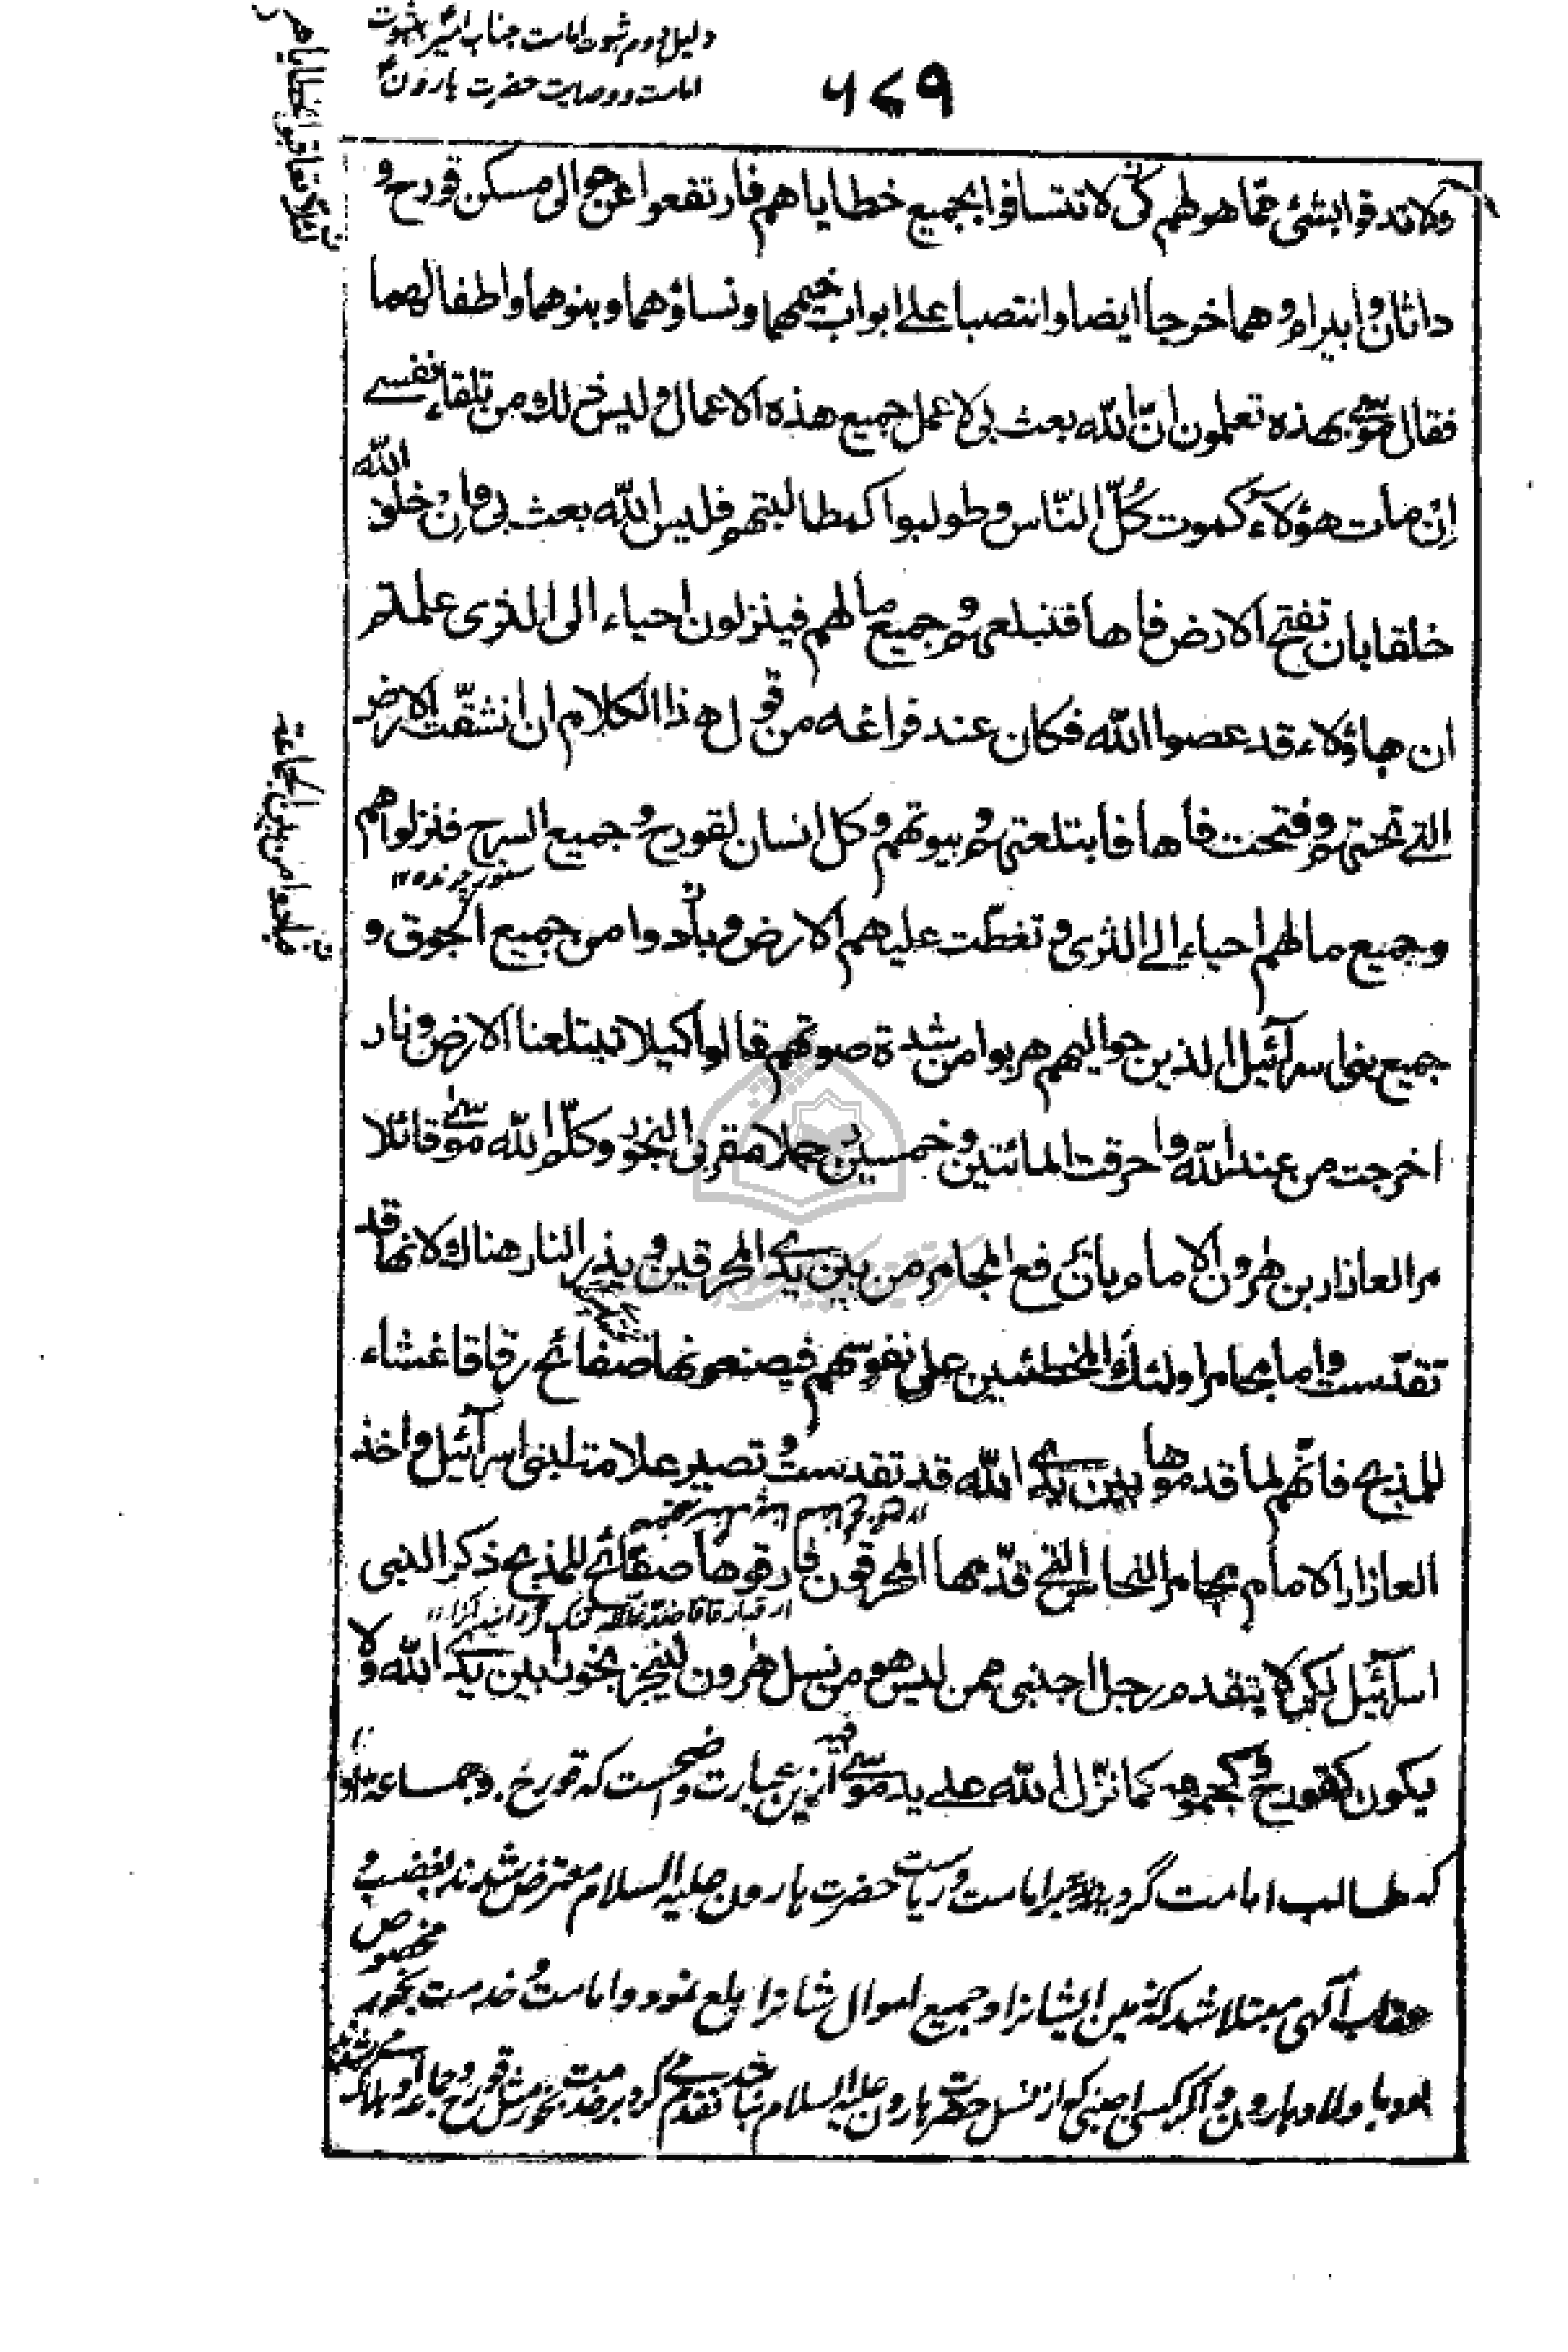 دلیل دوم ثبوت امامت جناب امیر ثبوت
امامت و وصایت حضرت هارون
۶۷۹
ولا تدقوا بشئ مما هو لهم كی لا تتسافوا بجمیع خطایاهم فارتفعوا عن حوالی مسکن قورح و
داثان و ابیرام و هما خرجا ایضا وانتصبا علی ابواب خیمهما و نساؤهما و بنوهما و اطفالهما
فقال موسی بهذه تعلمون انّ الله بعث بی لاعمل جمیع هذه الاعمال و لیس ذلك من تلقاء نفسی
اِنْ مات هؤلاء كموت كُلّ النّاس و طولبوا كمطالبتهم فلیس الله بعث بی و اِنْ خلق الله
خلقا بان تفتح الارض فاها فتبلعهم و جمیع ما لهم فینزلون احیاء الی الثری علمتم
ان هاؤلاء قد عصوا الله فكان عند فراغه من قول هذا الكلام ان انشقّت الارض
التی تحتهم و فتحت فاها فابتلعتهم و بیوتهم و كل انسان لقورح و جمیع السرح فنزلوا هم
و جمیع ما لهم احیاء الی الثری و تغطّت علیهم الارض و بادوا من جمیع الجوق و
جمیع بنی اسرآئیل الذین حوالیهم هربوا من شدة صوتهم قالوا كیلا تبتلعنا الارض و نار
اخرجت من عند الله و احرقت المائتین و خمسین رجلا مقربی البخور و كلّم الله موسی قائلا
مر العازار بن هرون الامام بان یرفع المجامر من بین یدی المحرقین و یذر النار هناك لانها قد
تقدّست و اما مجامر اولئك المخطئین علی نفوسهم فیصنعونها صفائح رقاقا غشاء
للمذبح فانّهم لما قدموها بین یدی الله قد تقدست و تصیر علامة لبنی اسرآئیل و اخذ
العازار الامام مجامر النحاس التی قدّمها المحرقون فارقوها صفائح للمذبح ذكر البنی
اسرآئیل لكی لا یتقدم رجل اجنبی ممن لیس هو من نسل هرون لیبخر بخورا بین یدی الله و لا
یكون كقورح و كجموعه كما نزّل الله علی ید موسی فیه ازین عبارت واضحست كه قورح و جماعة او
كه طالب امامت گردیده بر امامت و ریاست حضرت هارون علیه السلام معترض شدند بغضب و
عقاب الهی مبتلا شدند كه زمین ایشانرا و جمیع اموال شانرا بلع نمود و امامت و خدمت بخور مخصوص
بود باولاد هارون و اگر كسی اجنبی كه از نسل حضرت هارون علیه السلام نباشد تقدم می كرد بر خدمت بخور مثل قورح و جماعة او هلاك می شد